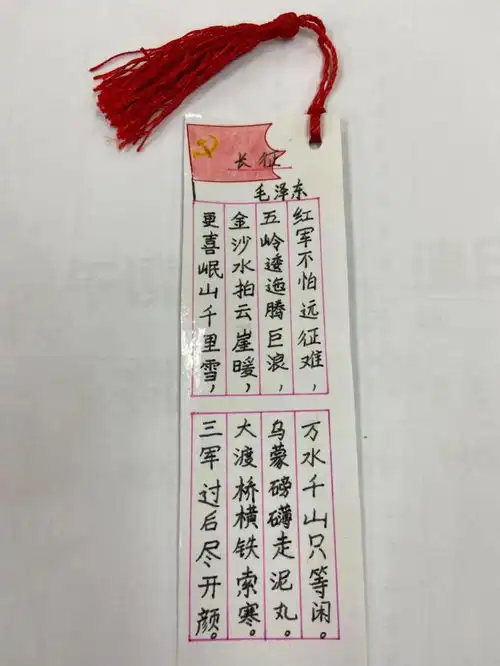 长征
毛泽东
红军不怕远征难，
万水千山只等闲。
五岭逶迤腾巨浪，
乌蒙磅礴走泥丸。
金沙水拍云崖暖，
大渡桥横铁索寒。
更喜岷山千里雪，
三军过后尽开颜。